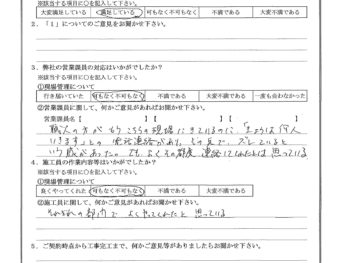 ※該当する項目に○を記入して下さい。
大変満足している 満足している 可もなく不可もなく 不満である 大変不満である
2．「1」についてのご意見をお聞かせ下さい。
3．弊社の営業課員の対応はいかがでしたか？
※該当する項目に○を記入して下さい。
①現場管理について
行き届いていた 可もなく不可もなく 不満である 大変不満である 一度も会わなかった
②営業課員に関して、何かご意見があればお聞かせ下さい。
営業課員名【 】【 】【 】
職人の方がもうこちらの現場にきているのに「きょうは何人
いますと」の電話連絡があり、その点で、ズレていると
いう感があったので、もう少しその都度連絡してくれたらとは思っている
4．施工員の作業内容等はいかがでしたか？
※該当する項目に○を記入して下さい。
①現場管理について
良くやってくれた 可もなく不可もなく 不満である 大変不満である
②施工員に関して、何かご意見があればお聞かせ下さい。
それぞれの部所でよくやってくれたと思っている
5．ご契約時点から工事完工まで、何かご意見等がありましたらお聞かせ下さい。